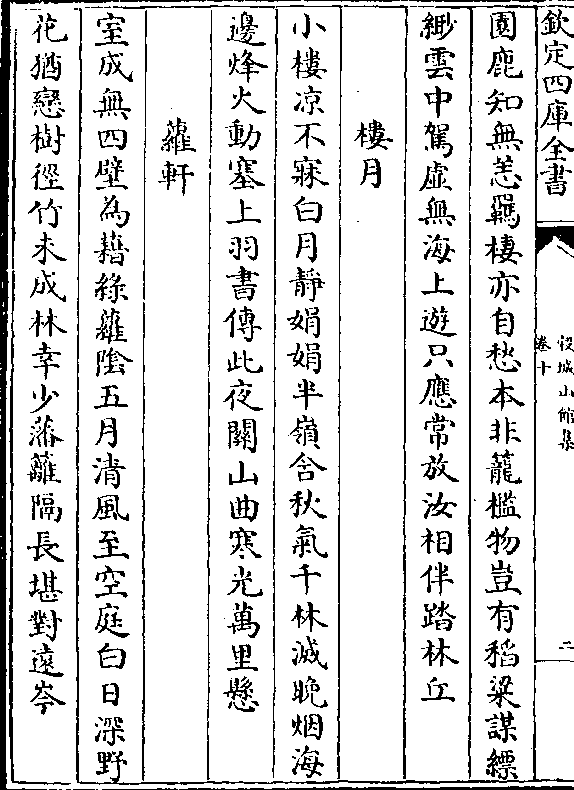 欽定四庫全書
穀城山館集
卷十
二
園鹿知無恙羈棲亦自愁本非籠檻物豈有稻粱謀縹
緲雲中駕虛無海上遊只應常放汝相伴踏林丘
樓月
小樓凉不寐白月靜娟娟半嶺含秋氣千林滅晚烟海
邊烽火動塞上羽書傳此夜關山曲寒光萬里懸
蘿軒
室成無四壁為藉綠蘿陰五月清風至空庭白日深野
花猶戀樹徑竹未成林幸少藩籬隔長堪對遠岑